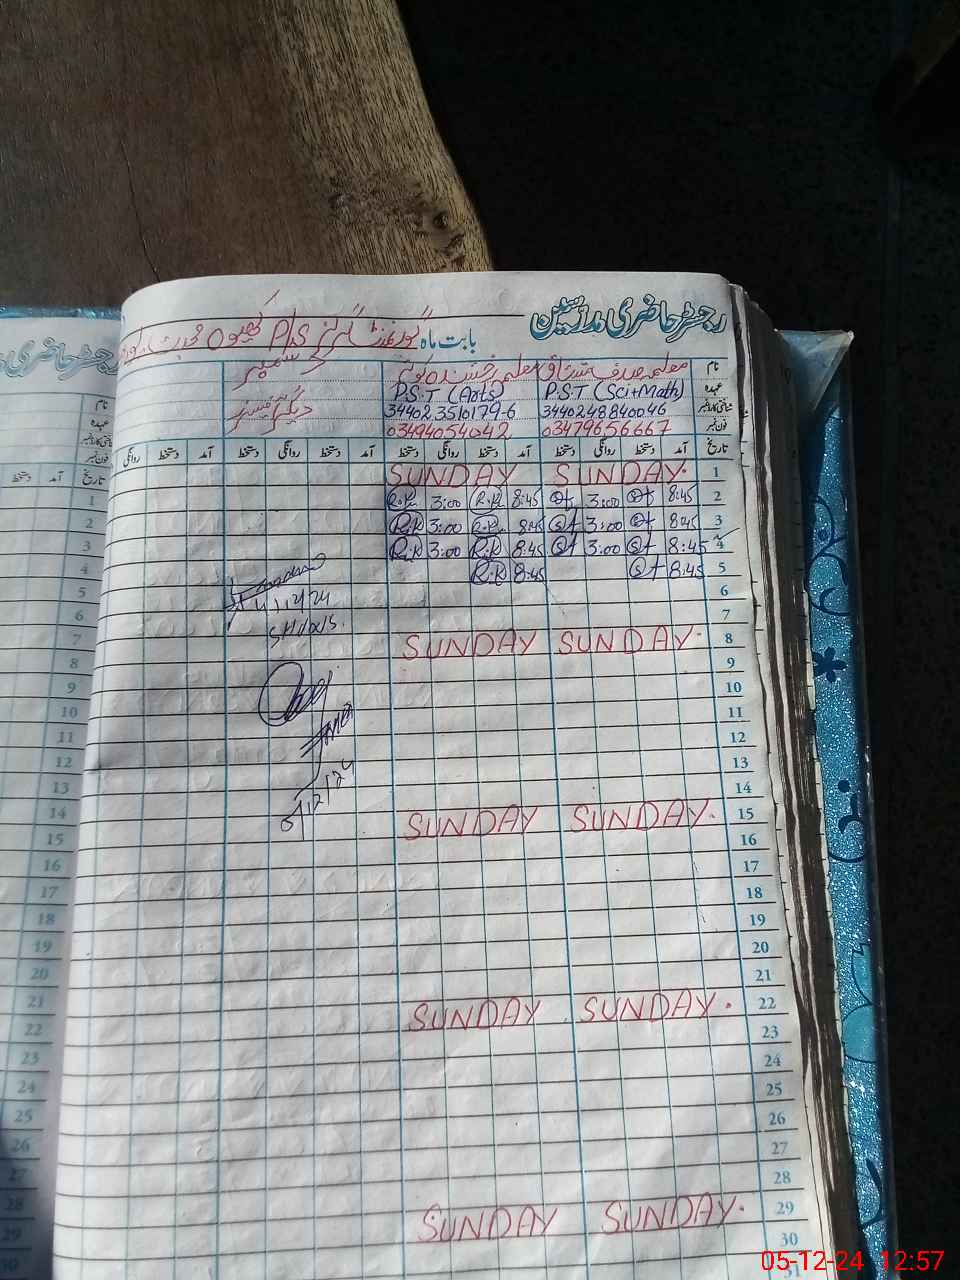 رجسٹر حاضری مدرسین
بابت ماہ گورنمنٹ گرلز P/S کھیوہ
نام معلمہ صدف معلمہ رخشندہ کوکب دسمبر
عہدہ P.S.T (Sci+Math) P.S.T (Arts)
شناختی کارڈ نمبر 3440248840046 344023510179-6
فون نمبر 03479656667 03494054042
تاریخ آمد دستخط روانگی دستخط آمد دستخط روانگی دستخط آمد دستخط روانگی دستخط آمد دستخط روانگی
1 SUNDAY SUNDAY
2 8:45 3:00 8:45 R.K 3:00 R.K
3 8:45 3:00 8:45 R.K 3:00 R.K
4 8:45 3:00 8:45 R.K 3:00 R.K
5 8:45 8:45 R.K
6
7
8 SUNDAY SUNDAY
9
10
11
12
13
14
15 SUNDAY SUNDAY
16
17
18
19
20
21
22 SUNDAY SUNDAY
23
24
25
26
27
28
29 SUNDAY SUNDAY
30
31
4/12/24
رجسٹر حاضری
نام
عہدہ
شناختی کارڈ نمبر
فون نمبر
تاریخ آمد دستخط
1
2
3
4
5
6
7
8
9
10
11
12
13
14
15
16
17
18
19
20
21
22
23
24
25
26
27
28
29
30
05-12-24 12:57